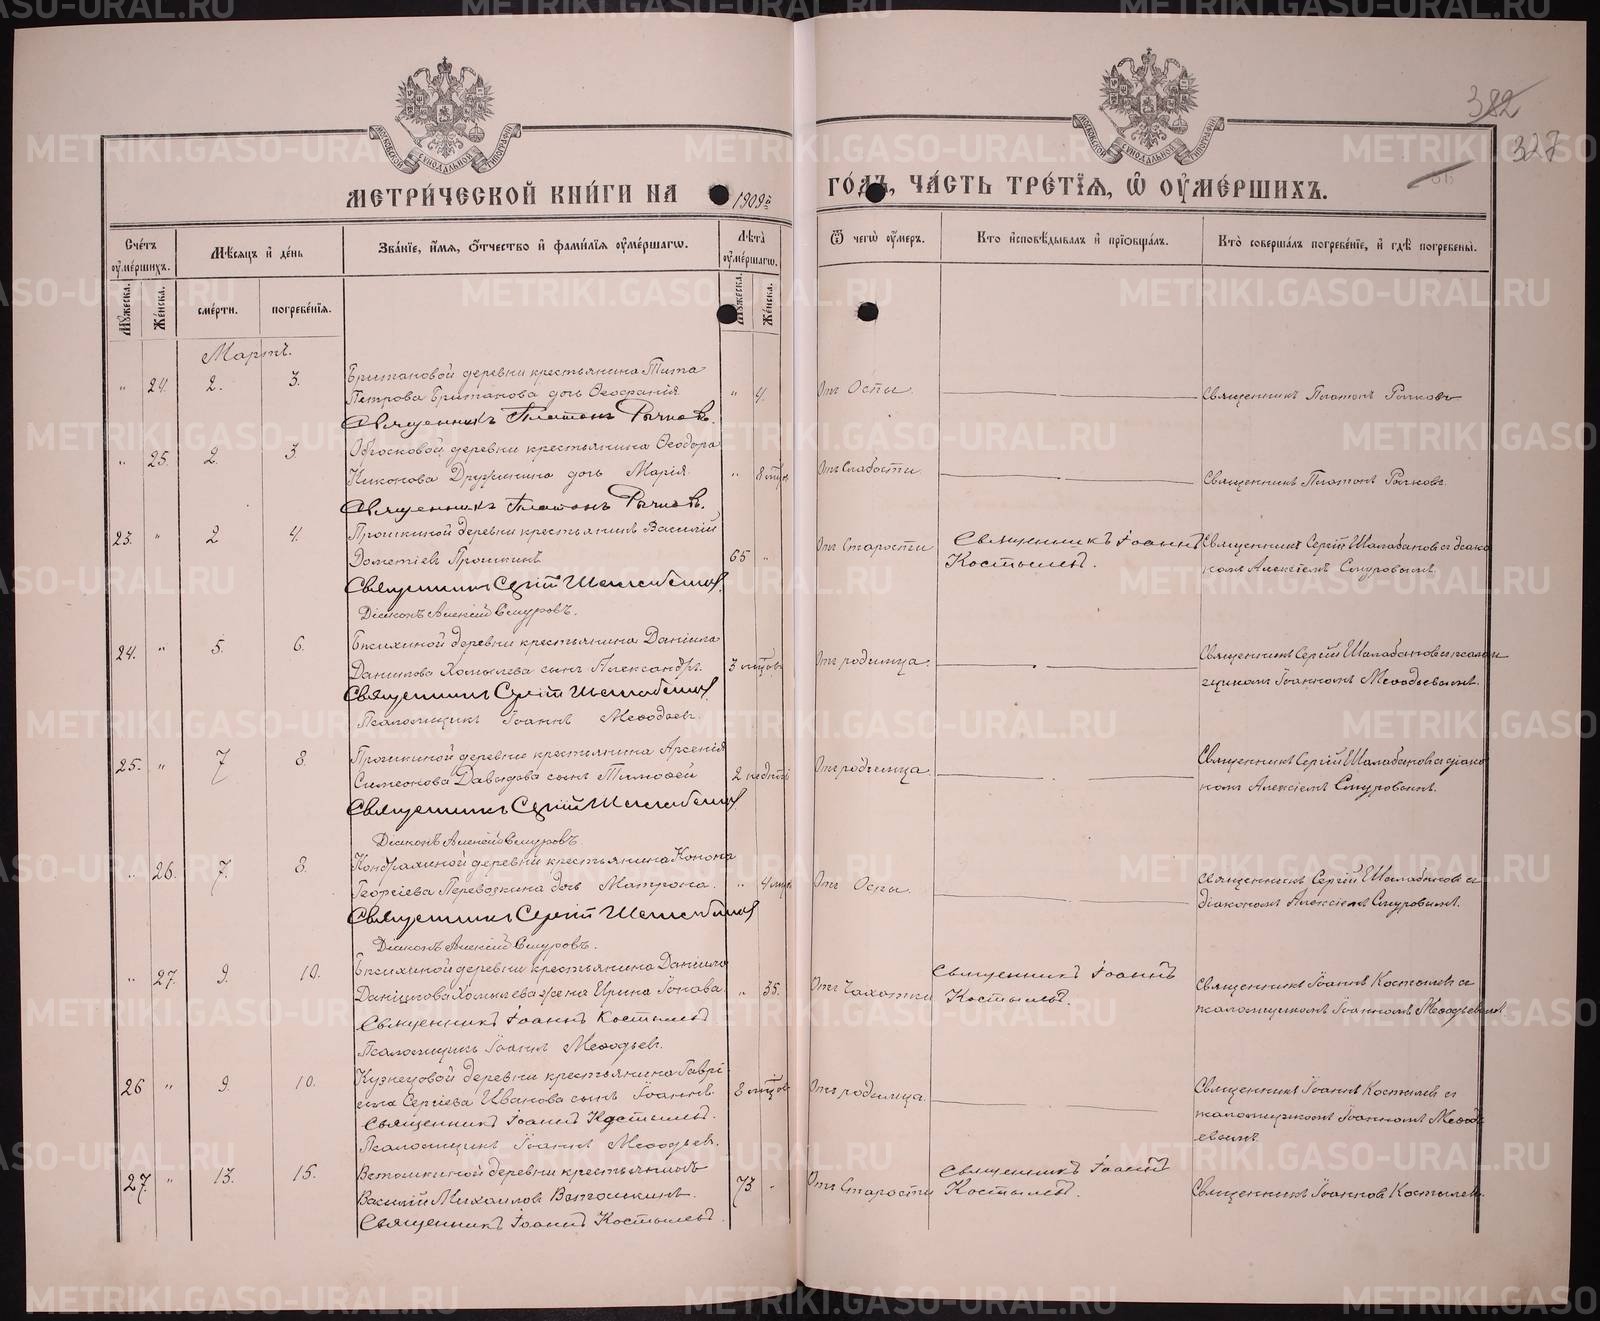 382
327
МЕТРИЧЕСКОЙ КНИГИ НА 1909й ГОДЪ, ЧАСТЬ ТРЕТІЯ, Ѿ ОУМЕРШИХЪ.
Счетъ оумершихъ.
Мѣсяцъ и день
Званіе, имя, отчество и фамилія оумершагѡ.
Лѣта оумершагѡ.
Ѿ чегѡ оумеръ.
Кто исповѣдывалъ и пріобщалъ.
Кто совершалъ погребеніе, и гдѣ погребены.
Мужеска.
Женска.
смерти.
погребенія.
Мужеска.
Женска.
Мартъ.
" 24. 2. 3.
деревни крестьянина Тита
Петрова дочь Ѳеофанія
" 4. Отъ Оспы.
Священникъ Платонъ Рычковъ
Священникъ Платонъ Рычковъ.
" 25. 2. 3.
деревни крестьянина Ѳеодора
Никонова Дружинина дочь Марія.
" 8 Отъ Слабости
Священникъ Платонъ Рычковъ.
Священникъ Платонъ Рычковъ.
23. " 2 4.
Прошкиной деревни крестьянинъ Василій
Дометіевъ Прошкинъ
65 " Отъ Старости
Священникъ Іоаннъ
Костылевъ.
Священникъ Сергій Шалабановъ съ діако
номъ Алексіемъ Смуровымъ.
Священникъ Сергій Шалабановъ.
Діаконъ Алексій Смуровъ.
24. " 5. 6.
деревни крестьянина Даніила
Данилова Хомылева сынъ Александръ.
3 мѣсяцовъ Отъ родимца.
Священникъ Сергій Шалабановъ псалом
щикомъ Іоанномъ Меѳодьевымъ.
Священникъ Сергій Шалабановъ
Псаломщикъ Іоаннъ Меѳодьевъ.
25. " 7 8.
Прошкиной деревни крестьянина Арсенія
Симеонова Давыдова сынъ Тимоѳей
2 недѣли Отъ родимца.
Священникъ Сергій Шалабановъ съ діако
номъ Алексіемъ Смуровымъ.
Священникъ Сергій Шалабановъ
Діаконъ Алексій Смуровъ.
" 26. 7. 8.
деревни крестьянина Конона
Георгіева Перевозкина дочь Матрона.
" 4 Отъ Оспы.
Священникъ Сергій Шалабановъ съ
діакономъ Алексіемъ Смуровымъ.
Священникъ Сергій Шалабановъ
Діаконъ Алексій Смуровъ.
" 27. 9. 10.
деревни крестьянина Даніила
Данилова Хомылева жена Ирина
" 35. Отъ Чахотки
Священникъ Іоаннъ
Костылевъ.
Священникъ Іоаннъ Костылевъ съ
псаломщикомъ Іоанномъ Меѳодьевымъ
Священникъ Іоаннъ Костылевъ
Псаломщикъ Іоаннъ Меѳодьевъ.
26 " 9. 10.
Кузнецовой деревни крестьянина Гаврі
ила Сергіева Иванова сынъ Іоаннъ.
8 мѣсяцовъ Отъ родимца.
Священникъ Іоаннъ Костылевъ съ
псаломщикомъ Іоанномъ Меѳодь
евымъ.
Священникъ Іоаннъ Костылевъ.
Псаломщикъ Іоаннъ Меѳодьевъ.
27. " 13. 15.
Ветошкиной деревни крестьянинъ
Василій Михаиловъ Ветошкинъ.
73 " Отъ Старости
Священникъ Іоаннъ
Костылевъ.
Священникъ Іоаннъ Костылевъ.
Священникъ Іоаннъ Костылевъ.
METRIKI.GASO-URAL.RU